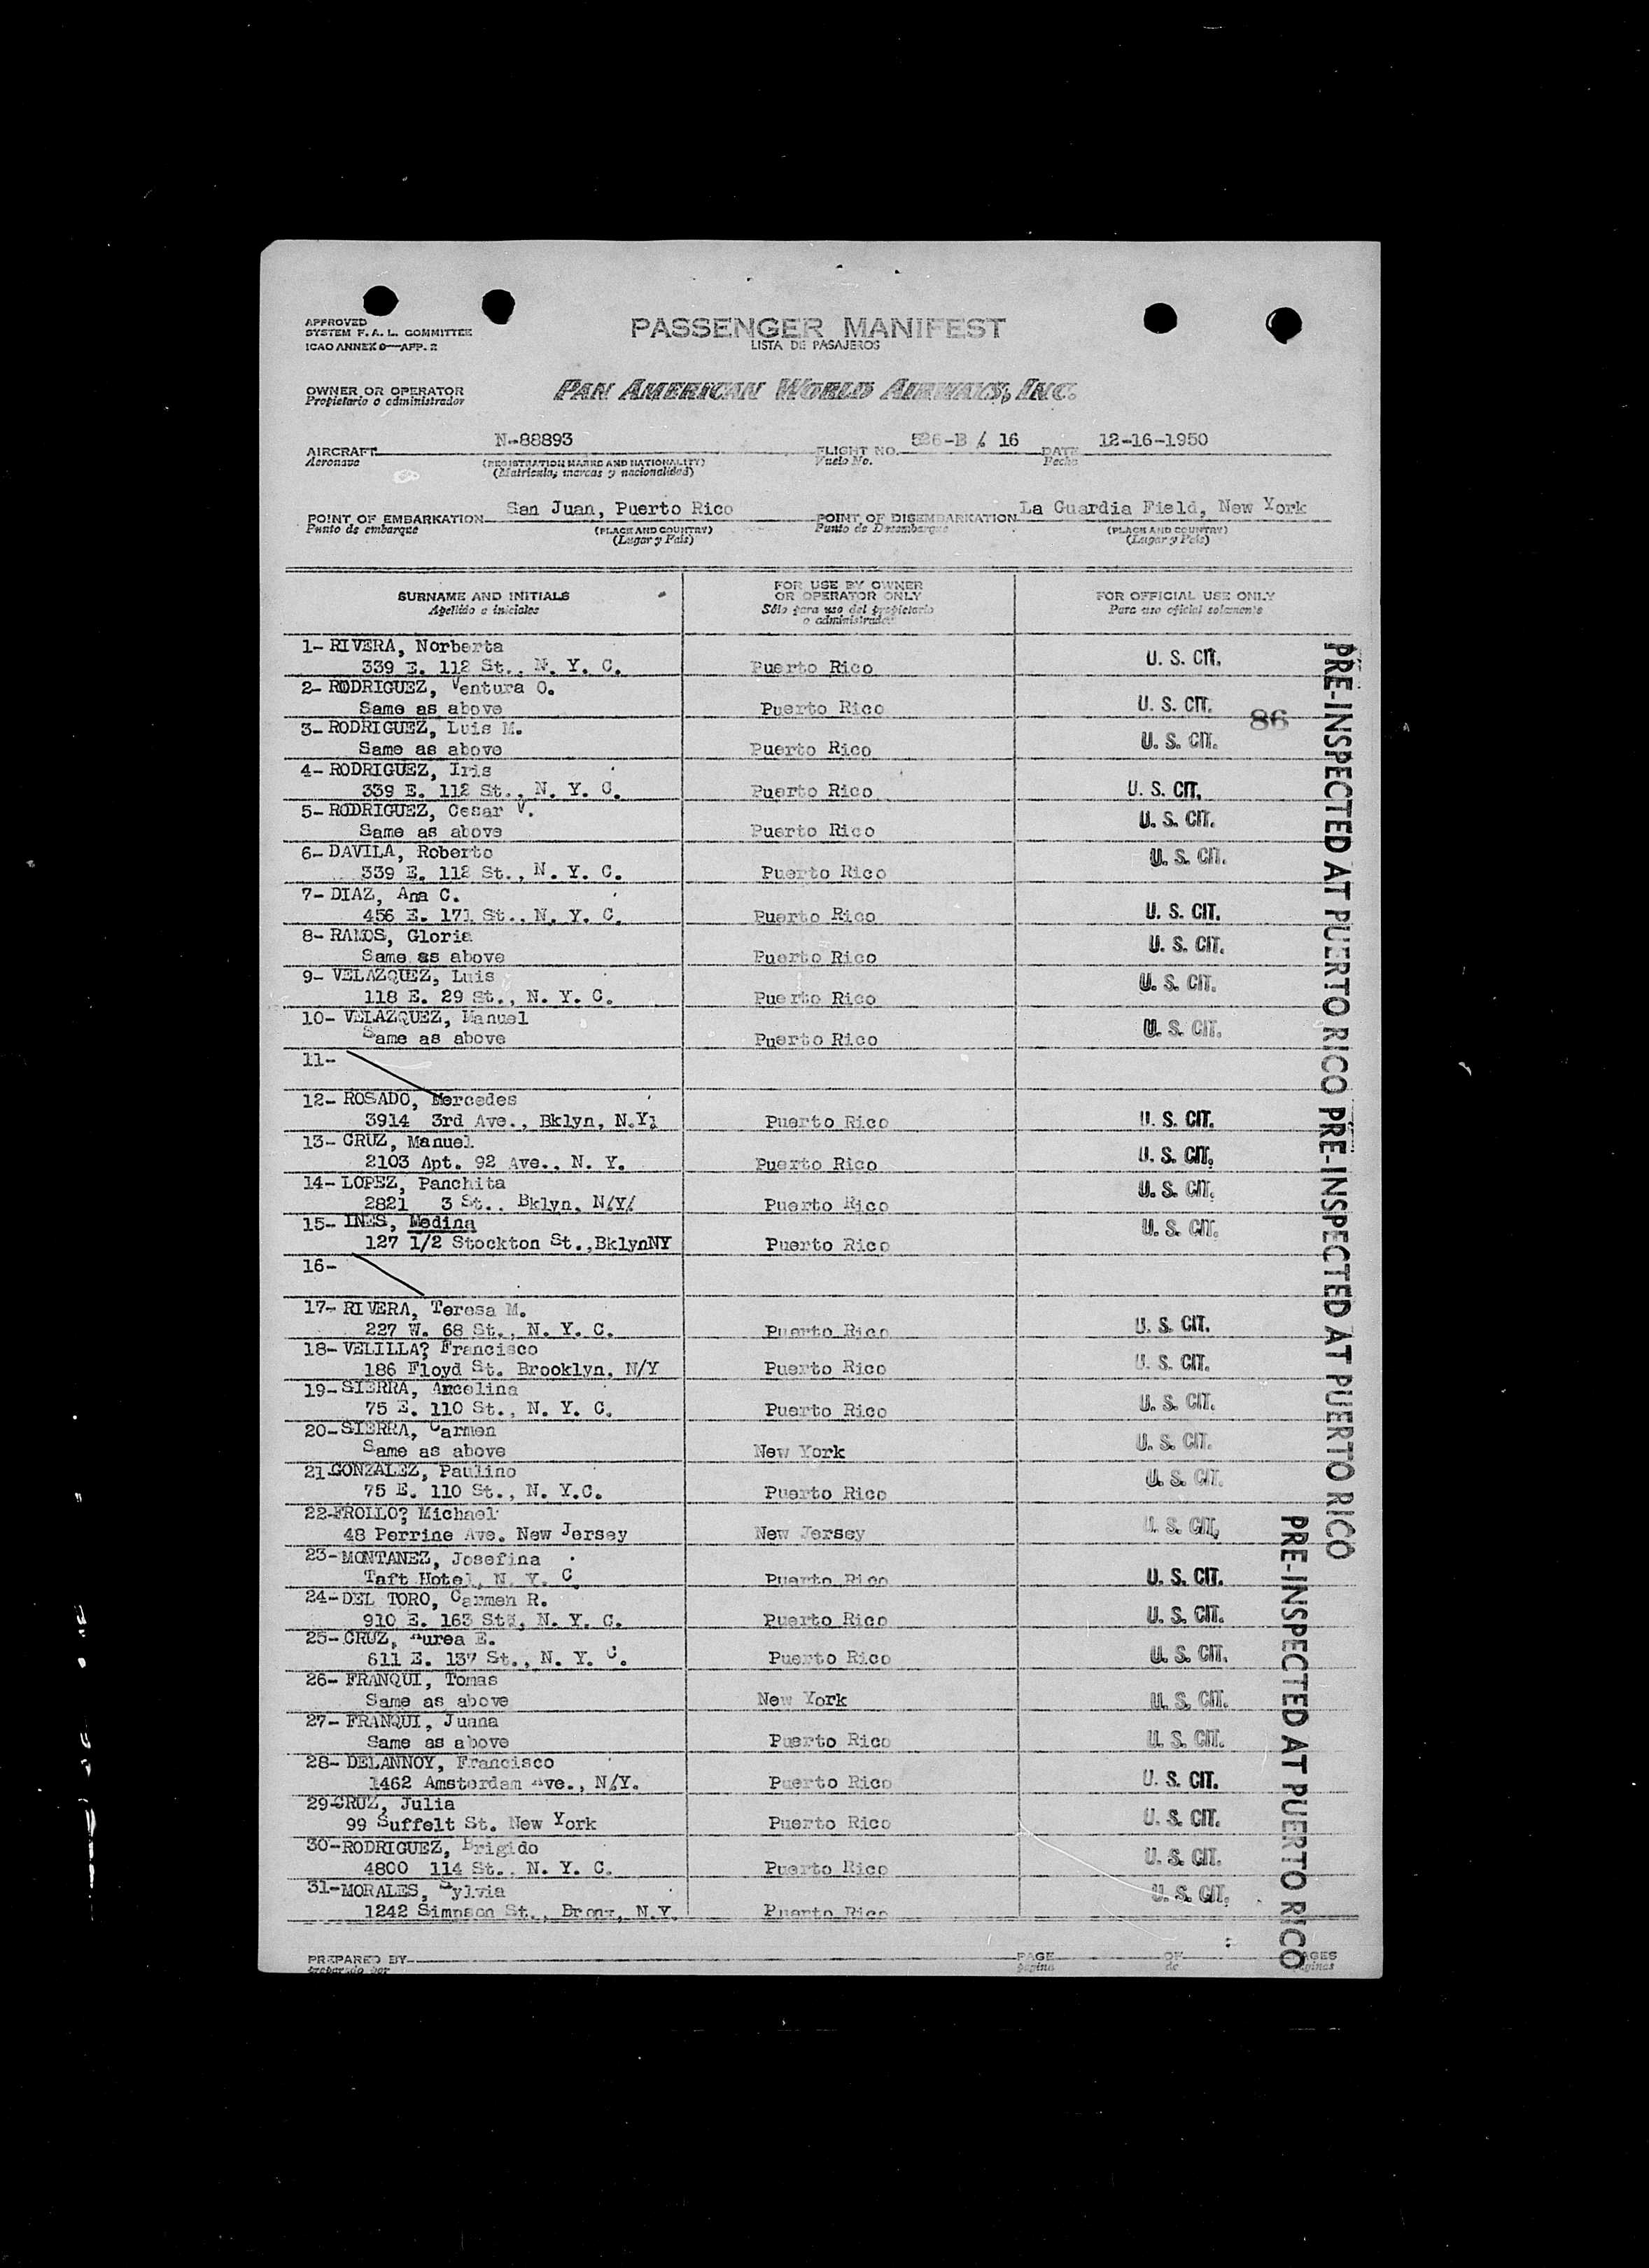 APPROVED
SYSTEM F. A. L. COMMITTEE
ICAO ANNEX 9—APP. 2
PASSENGER MANIFEST
LISTA DE PASAJEROS
OWNER OR OPERATOR
Propietario o administrador
PAN AMERICAN WORLD AIRWAYS, INC.
AIRCRAFT N-88893 FLIGHT NO. 526-B / 16 DATE 12-16-1950
Aeronave (REGISTRATION MARKS AND NATIONALITY) Vuelo No. Fecha
(Matricula, marcas y nacionalidad)
POINT OF EMBARKATION San Juan, Puerto Rico POINT OF DISEMBARKATION La Guardia Field, New York
Punto de embarque (PLACE AND COUNTRY) Punto de Desembarque (PLACE AND COUNTRY)
(Lugar y Pais) (Lugar y Pais)
SURNAME AND INITIALS FOR USE BY OWNER OR OPERATOR ONLY FOR OFFICIAL USE ONLY
Apellido e iniciales Sólo para uso del propietario o administrador Para uso oficial solamente
1- RIVERA, Norberta
339 E. 112 St., N. Y. C. Puerto Rico U. S. CIT.
2- RODRIGUEZ, Ventura O.
Same as above Puerto Rico U. S. CIT. 86
3- RODRIGUEZ, Luis M.
Same as above Puerto Rico U. S. CIT.
4- RODRIGUEZ, Iris
339 E. 112 St., N. Y. C. Puerto Rico U. S. CIT.
5- RODRIGUEZ, Cesar V.
Same as above Puerto Rico U. S. CIT.
6- DAVILA, Roberto
339 E. 112 St., N. Y. C. Puerto Rico U. S. CIT.
7- DIAZ, Ana C.
456 E. 171 St., N. Y. C. Puerto Rico U. S. CIT.
8- RAMOS, Gloria
Same as above Puerto Rico U. S. CIT.
9- VELAZQUEZ, Luis
118 E. 29 St., N. Y. C. Puerto Rico U. S. CIT.
10- VELAZQUEZ, Manuel
Same as above Puerto Rico U. S. CIT.
11-
12- ROSADO, Mercedes
3914 3rd Ave., Bklyn, N.Y. Puerto Rico U. S. CIT.
13- CRUZ, Manuel
2103 Apt. 92 Ave., N. Y. Puerto Rico U. S. CIT.
14- LOPEZ, Panchita
2821 3 St., Bklyn, N/Y/ Puerto Rico U. S. CIT.
15- INES, Medina
127 1/2 Stockton St.,BklynNY Puerto Rico U. S. CIT.
16-
17- RIVERA, Teresa M.
227 W. 68 St., N. Y. C. Puerto Rico U. S. CIT.
18- VELILLA? Francisco
186 Floyd St. Brooklyn, N/Y Puerto Rico U. S. CIT.
19- SIERRA, Ancelina
75 E. 110 St., N. Y. C. Puerto Rico U. S. CIT.
20- SIERRA, Carmen
Same as above New York U. S. CIT.
21 GONZALEZ, Paulino
75 E. 110 St., N. Y.C. Puerto Rico U. S. CIT.
22-FROLLO? Michael
48 Perrine Ave. New Jersey New Jersey U. S. CIT.
23- MONTANEZ, Josefina
Taft Hotel, N. Y. C Puerto Rico U. S. CIT.
24- DEL TORO, Carmen R.
910 E. 163 St., N. Y. C. Puerto Rico U. S. CIT.
25- CRUZ, Aurea E.
611 E. 137 St., N. Y. C. Puerto Rico U. S. CIT.
26- FRANQUI, Tomas
Same as above New York U. S. CIT.
27- FRANQUI, Juana
Same as above Puerto Rico U. S. CIT.
28- DELANNOY, Francisco
1462 Amsterdam Ave., N/Y. Puerto Rico U. S. CIT.
29-CRUZ, Julia
99 Suffelt St. New York Puerto Rico U. S. CIT.
30-RODRIGUEZ, Brigido
4800 114 St., N. Y. C. Puerto Rico U. S. CIT.
31-MORALES, Sylvia
1242 Simpson St., Bronx, N.Y. Puerto Rico U. S. CIT.
PREPARED BY PAGE OF PAGES
preparado por página de páginas
PRE-INSPECTED AT PUERTO RICO PRE-INSPECTED AT PUERTO RICO
PRE-INSPECTED AT PUERTO RICO